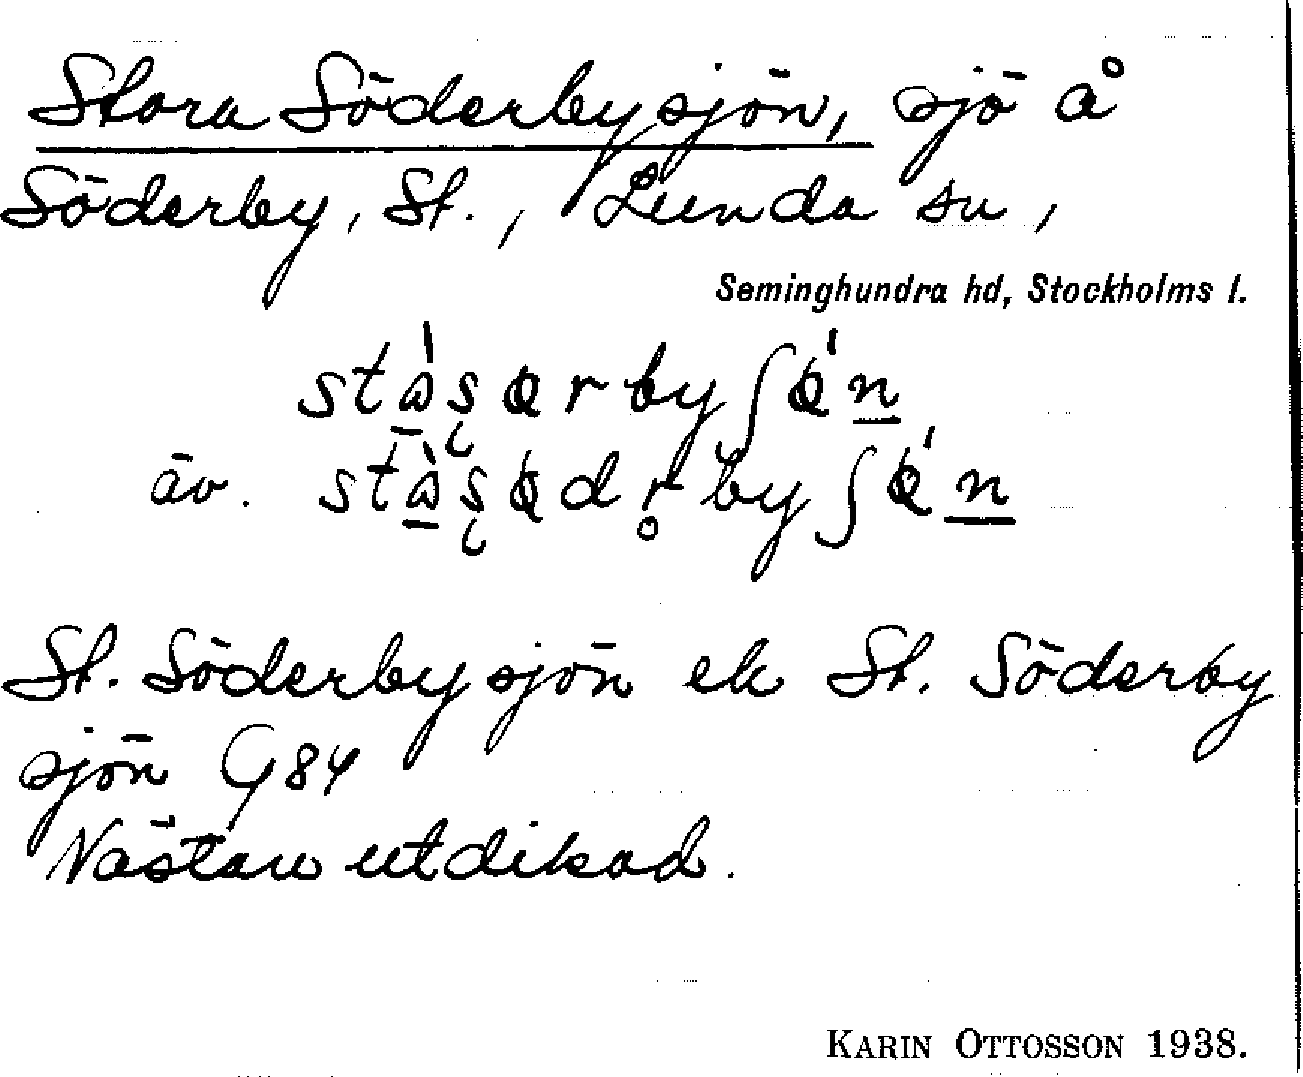 Stora Söderbysjön, sjö å
Söderby, St., Lunda sn,
Seminghundra hd, Stockholms l.
äv.
St. Söderbysjön ek St. Söderby
sjön G84
Nästan utdikad.
KARIN OTTOSSON 1938.